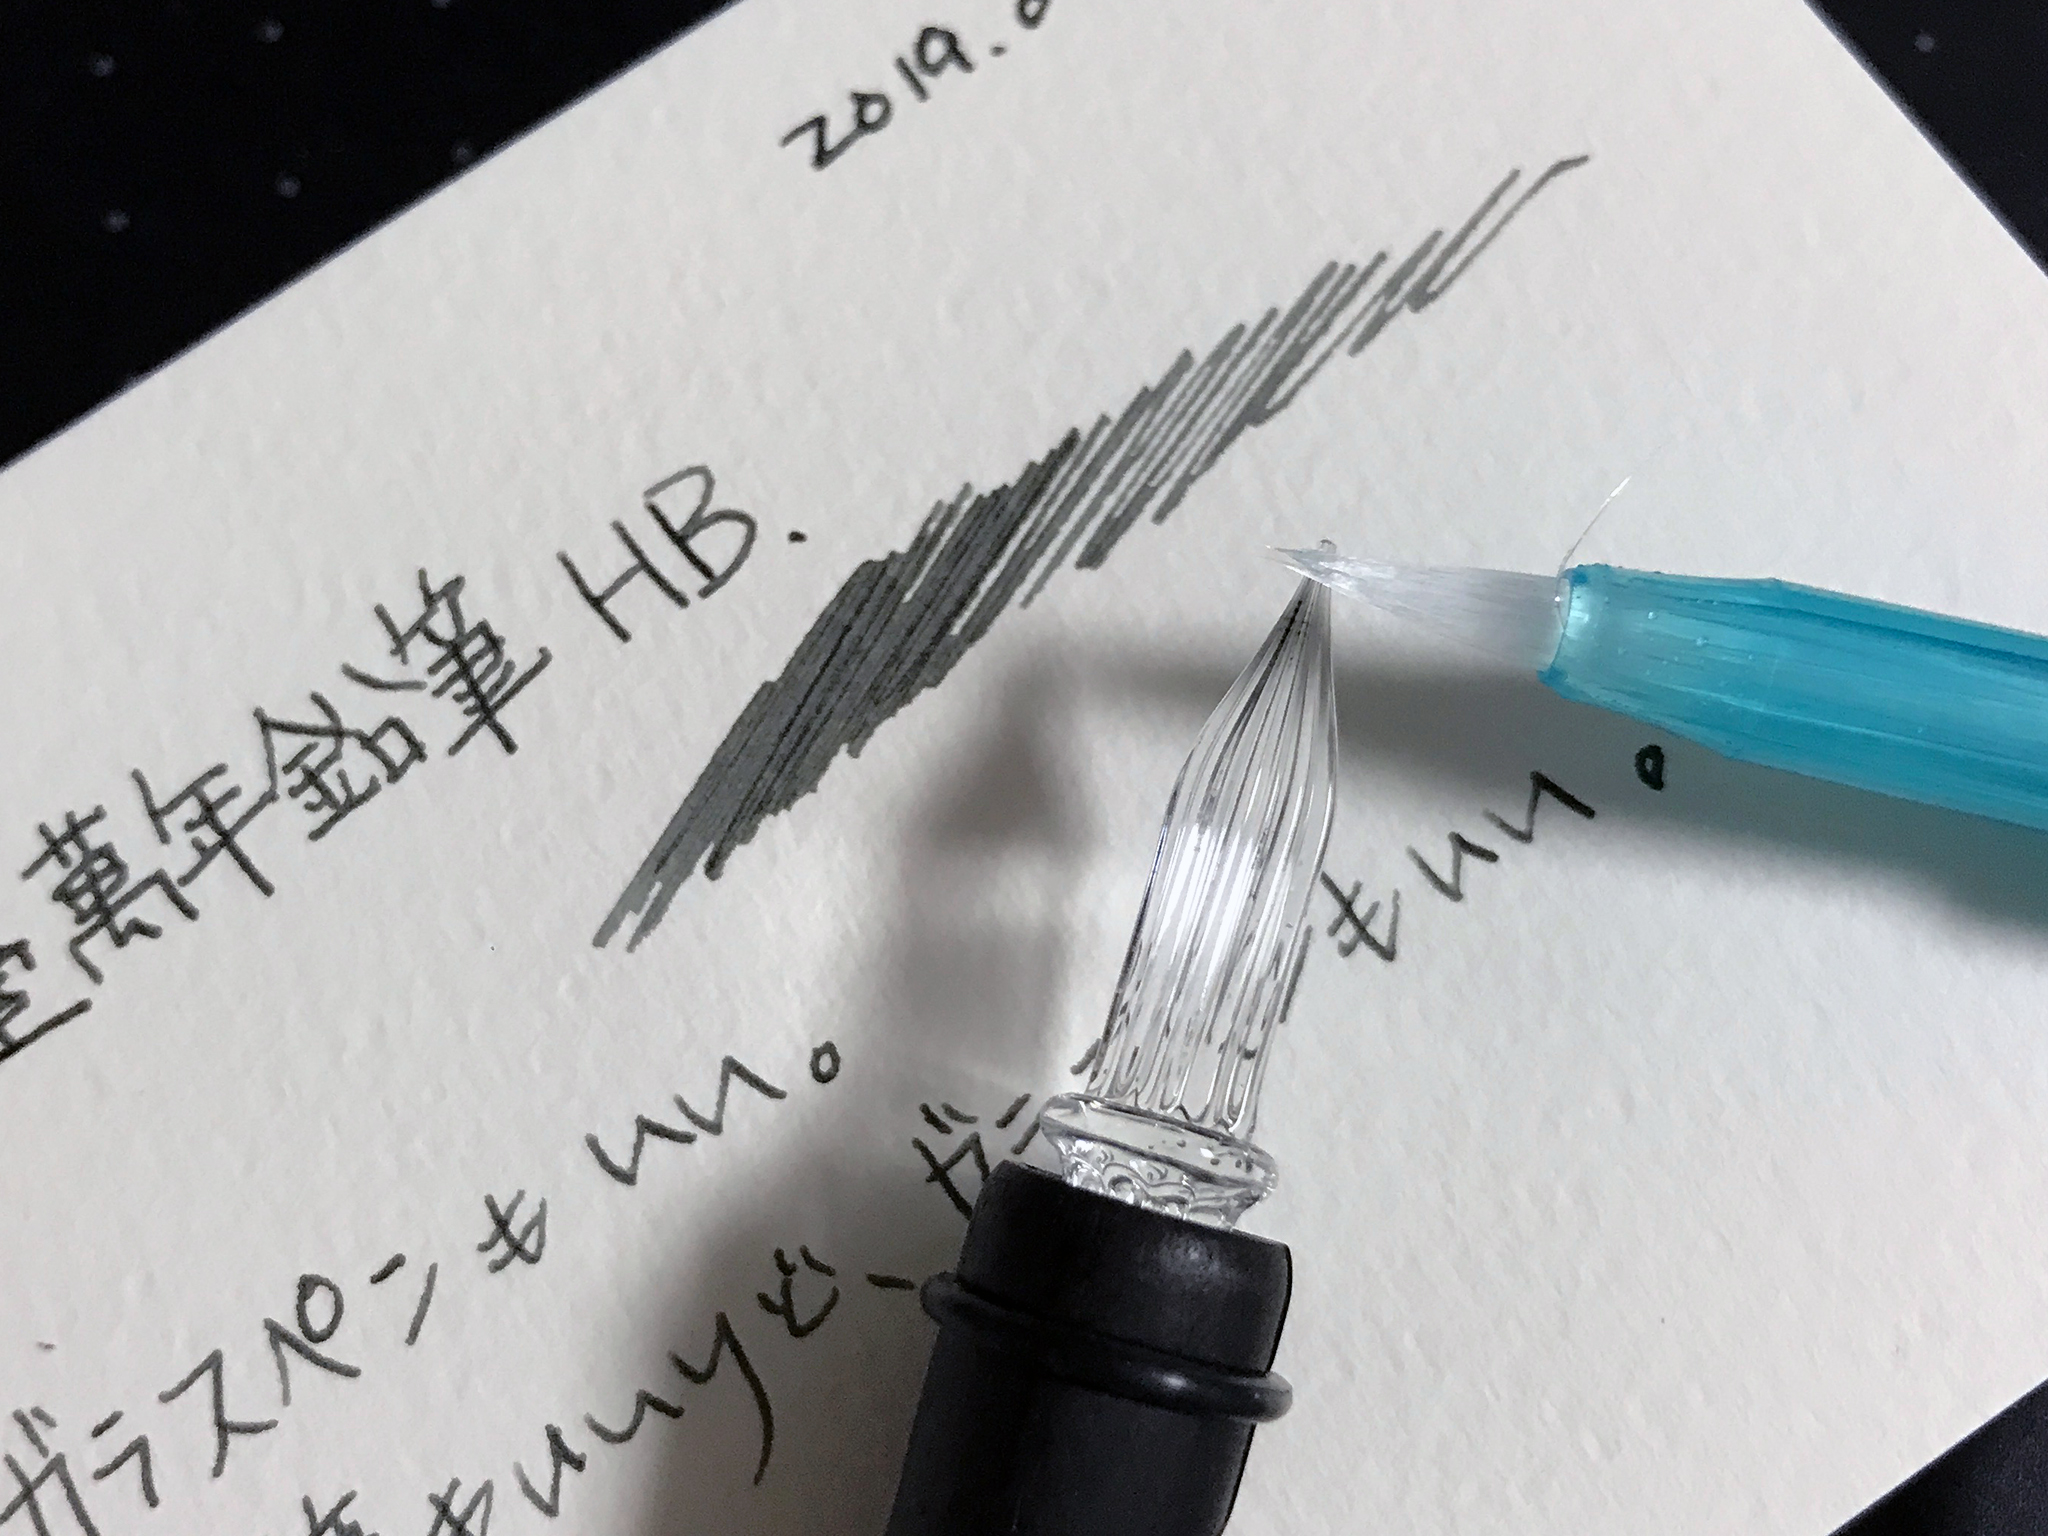 2019.
萬年鉛筆 HB.
ガラスペンもいい。
もいいけど、ガラ もいい。